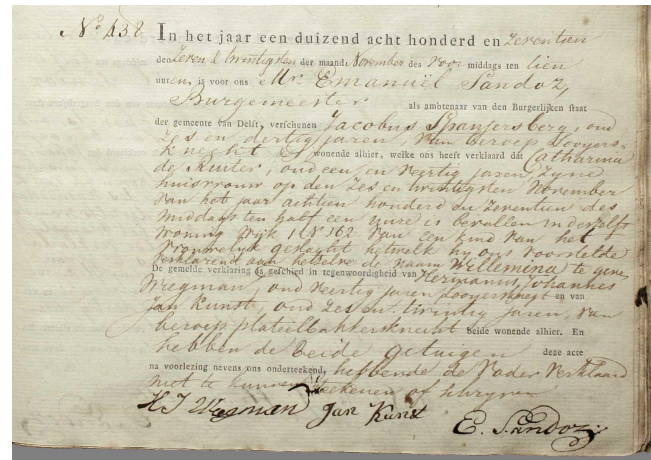 No 438 In het jaar een duizend acht honderd en zeventien
den Zeven & twintigsten der maand November des voor middags ten tien
uuren, is voor ons Mr. Emanuël Sandoz,
Burgemeester als ambtenaar van den Burgerlijken staat
der gemeente van Delft, verschenen Jacobus Spanjersberg, oud
zes en dertig jaren, van beroep Looyers-
knecht wonende alhier, welke ons heeft verklaard dat Catharina
de Ruiter, oud een en veertig jaren, zyne
huisvrouw op den zes en twintigsten November
van het jaar achtien honderd en zeventien des
middags ten half een uure is bevallen in derzelfs
woning Wijk 1 No 162 van een kind van het
vrouwelyk geslagt hetwelk hy ons voorstelde
verklarend aan hetzelve de naam Willemina te geven
De gemelde verklaring is geschied in tegenwoordigheid van Hermanus Johannes
Wegman, oud veertig jaren Looyersknegt en van
Jan Kunst, oud zes en twintig jaren, van
beroep plateelbakkersknecht beide wonende alhier. En
hebben de beide getuigen deze acte
na voorlezing nevens ons onderteekend, hebbende de vader verklaard
niet te kunnen teekenen of schryven
H J Wegman Jan Kunst E. Sandoz